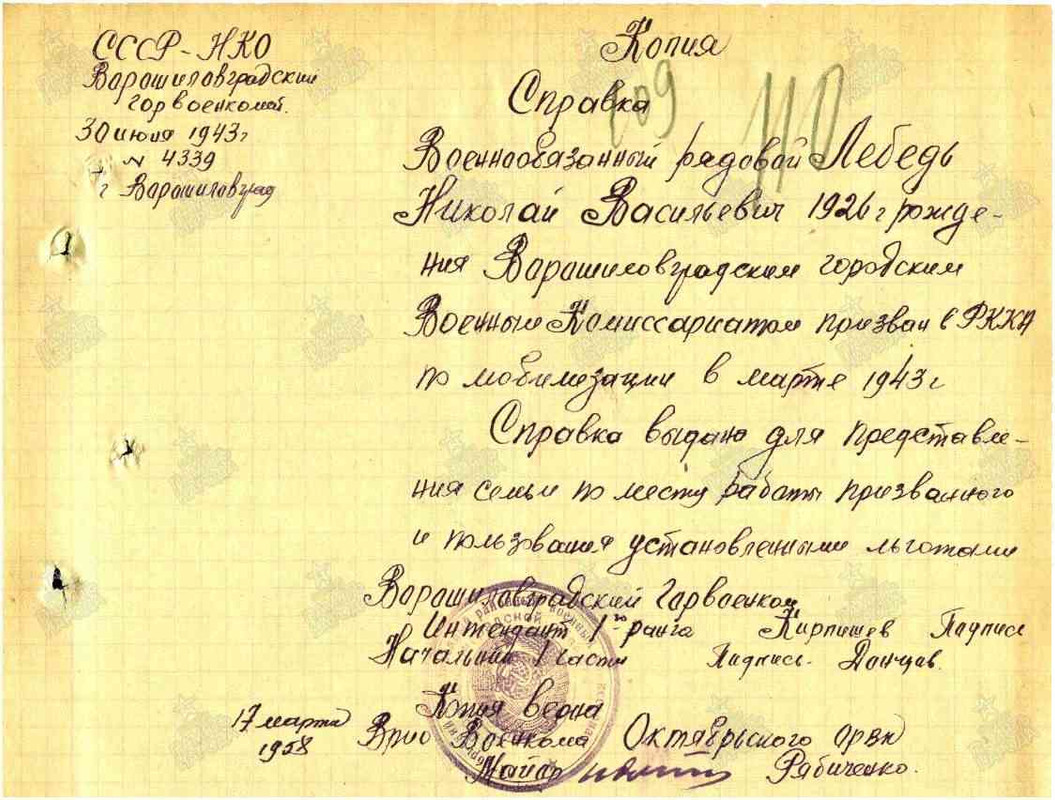 СССР - НКО
Ворошиловградский
горвоенкомат
30 июня 1943г
N 4339
г Ворошиловград
Копия
109
110
Справка
Военнообязанный рядовой Лебедь
Николай Васильевич 1926 г рожде-
ния Ворошиловградским городским
Военным Комиссариатом призван в РККА
по мобилизации в марте 1943 г
Справка выдана для представле-
ния семьи по месту работы призванного
и пользования установленными льготами
Ворошиловградский Горвоенком
Интендант 1го ранга Кирпишев Подпись
Начальник 1 части Подпись. Донцов.
Копия верна
17 марта
1958
Врио Военкома Октябрьского орвк
Майор Рябиченко.